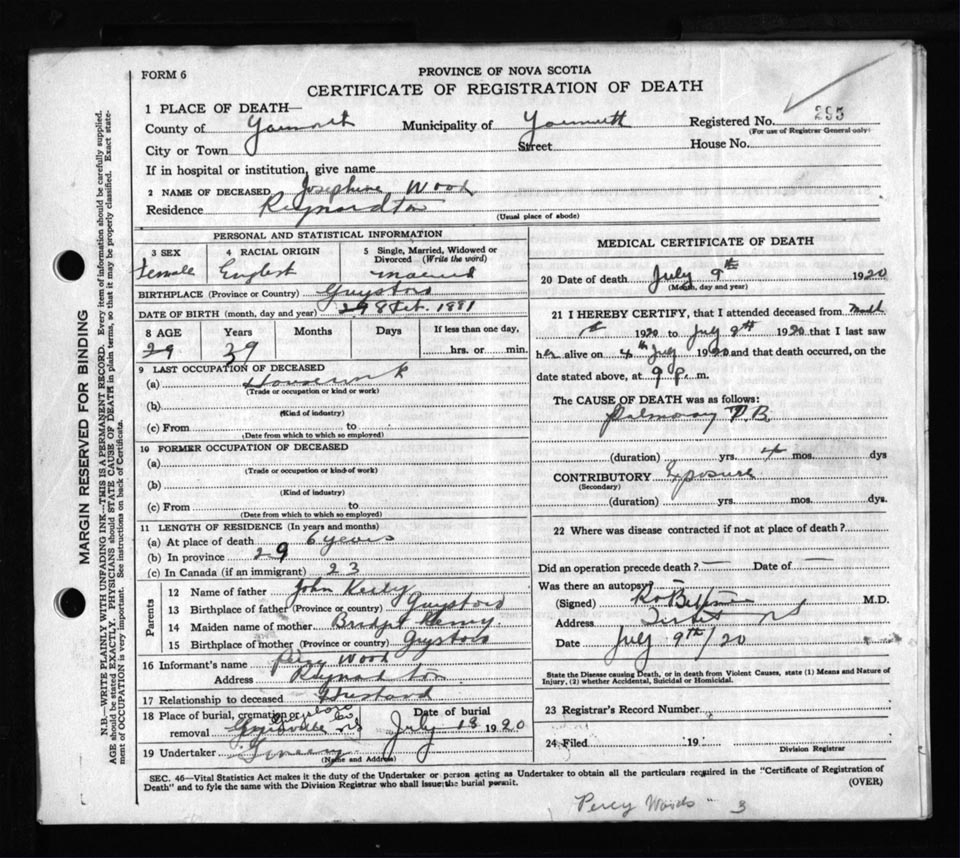 FORM 6
PROVINCE OF NOVA SCOTIA
CERTIFICATE OF REGISTRATION OF DEATH
1 PLACE OF DEATH—
County of Yarmouth Municipality of Yarmouth Registered No. 295
(For use of Registrar General only)
City or Town Street House No.
If in hospital or institution, give name
2 NAME OF DECEASED Josephine Wood
Residence Reynardton
(Usual place of abode)
PERSONAL AND STATISTICAL INFORMATION
3 SEX 4 RACIAL ORIGIN 5 Single, Married, Widowed or Divorced (Write the word)
Female English Married
BIRTHPLACE (Province or Country) Guysboro
DATE OF BIRTH (month, day and year) 29 1881
8 AGE Years Months Days If less than one day,
29 39 hrs. or min.
9 LAST OCCUPATION OF DECEASED
(a) Housework
(Trade or occupation or kind or work)
(b)
(Kind of industry)
(c) From to
(Date from which to which so employed)
10 FORMER OCCUPATION OF DECEASED
(a)
(Trade or occupation or kind of work)
(b)
(Kind of industry)
(c) From to
(Date from which to which so employed)
11 LENGTH OF RESIDENCE (In years and months)
(a) At place of death 6 years
(b) In province 29
(c) In Canada (if an immigrant) 23
Parents
12 Name of father John
13 Birthplace of father (Province or country) Guysboro
14 Maiden name of mother Bridget
15 Birthplace of mother (Province or country) Guysboro
16 Informant's name Percy Wood
Address Reynardton
17 Relationship to deceased Husband
18 Place of burial, cremation or removal Date of burial
July 13 1920
19 Undertaker
(Name and Address)
MEDICAL CERTIFICATE OF DEATH
20 Date of death July 9th 1920
(Month, day and year)
21 I HEREBY CERTIFY, that I attended deceased from
1920 to July 9th 1920 that I last saw
her alive on 4th July 1920 and that death occurred, on the
date stated above, at 9 p. m.
The CAUSE OF DEATH was as follows:
Pulmonary T B
(duration) yrs. 4 mos. dys
CONTRIBUTORY Exposure
(Secondary)
(duration) yrs. mos. dys.
22 Where was disease contracted if not at place of death?
Did an operation precede death? — Date of —
Was there an autopsy
(Signed) M.D.
Address
Date July 9th/20
State the Disease causing Death, or in death from Violent Causes, state (1) Means and Nature of
Injury, (2) whether Accidental, Suicidal or Homicidal.
23 Registrar's Record Number
24 Filed 19
Division Registrar
SEC. 46—Vital Statistics Act makes it the duty of the Undertaker or person acting as Undertaker to obtain all the particulars required in the "Certificate of Registration of
Death" and to fyle the same with the Division Registrar who shall issue the burial permit.
(OVER)
Percy Woods " 3
MARGIN RESERVED FOR BINDING
N.B.—WRITE PLAINLY WITH UNFADING INK—THIS IS A PERMANENT RECORD. Every item of information should be carefully supplied.
AGE should be stated EXACTLY. PHYSICIANS should STATE CAUSE OF DEATH in plain terms, so that it may be properly classified. Exact state-
ment of OCCUPATION is very important. See instructions on back of Certificate.